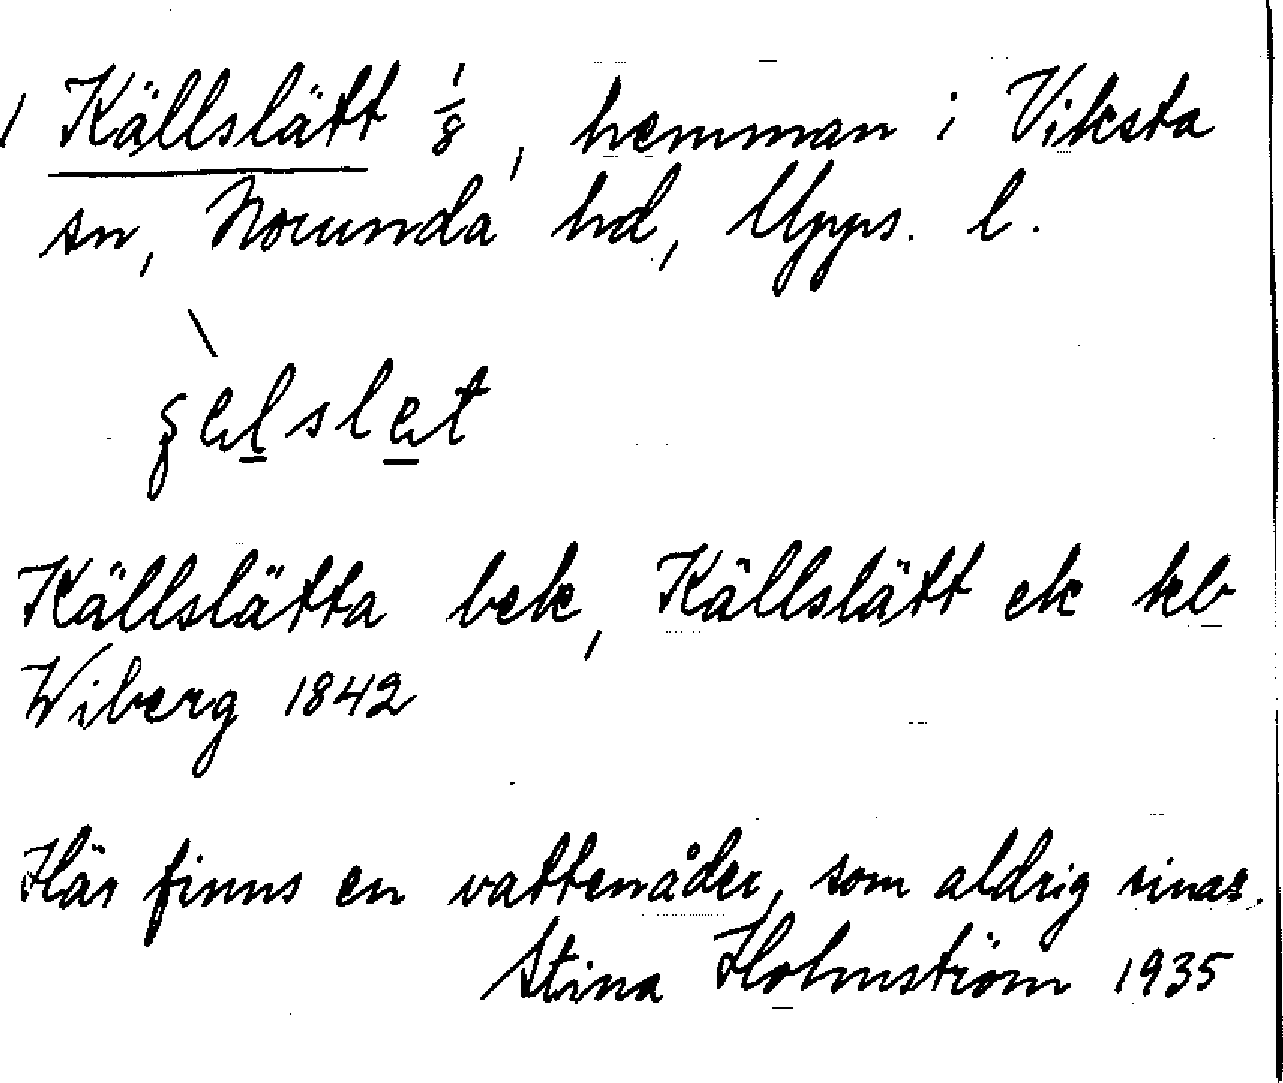 Källslätt 1/8, hemman i Viksta
sn, Norunda hd, Upps. l.
Källslätta bek, Källslätt ek kb
Wiberg 1842
Här finns en vattenåder, som aldrig sinar.
Stina Holmström 1935